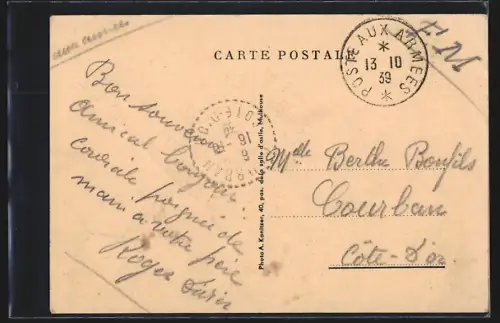 aux armées
F.M
CARTE POSTALE
POSTE AUX ARMÉES
13 10
39
Bon souvenir
amical bonjour
cordiale poignée de
main à votre père
Roger
Photo A. Kanitzer, 40, pas. de la salle d'asile, Mulhouse
CÔTE-D'OR
16
Mlle Berthe Bonfils
Courban
Côte-d'Or